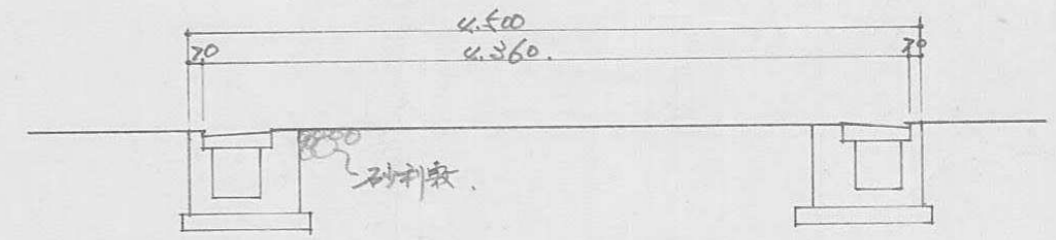 4.500
70 4.360. 70
砂利敷.